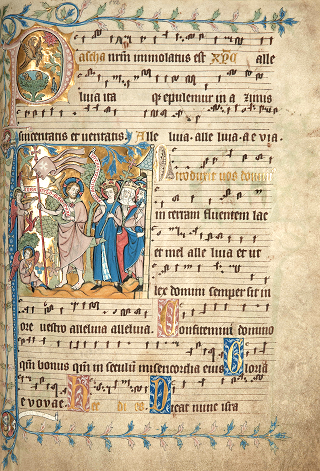 Pascha nrm immolatus est xpc alle
luia ita q epulemur in a zimis
sinceritatis et veritatis Alle luia alle luia a e via
Introduxit vos dominus
in terram fluentem lac
et mel alle luia et ut
lex domini semper sit in
ore vestro alleluia alleluia Confitemini domino
qm bonus qm in seculu misericordia eius Gloria
evovae
Dicat nunc isra